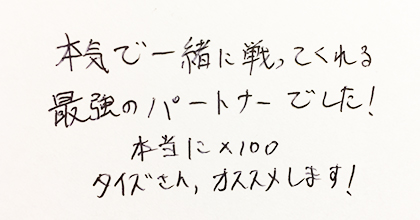 本気で一緒に戦ってくれる
最強のパートナーでした!
本当に×100
タイズさん,オススメします!